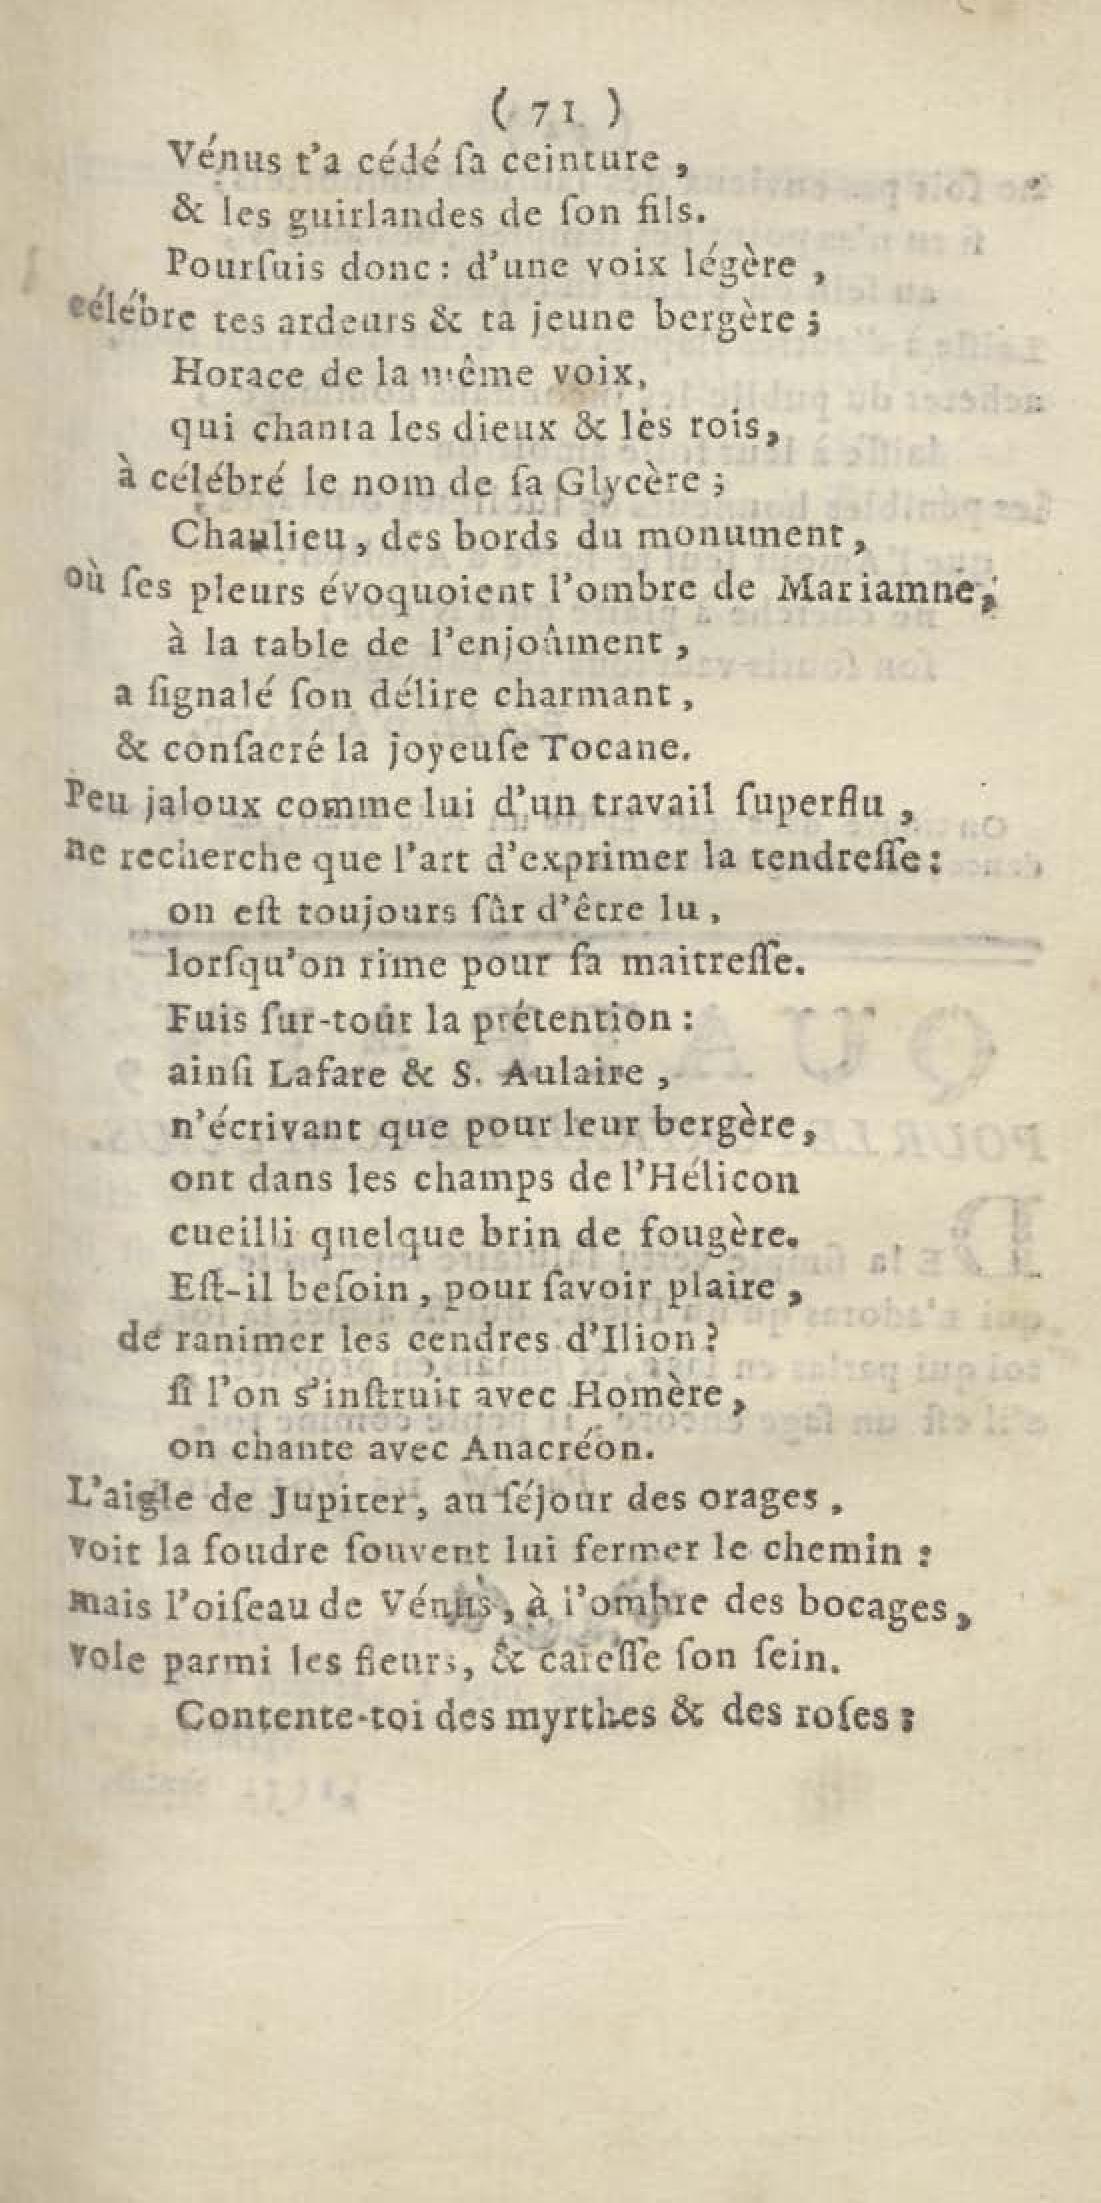 ( 71 )
Vénus t'a cédé ſa ceinture ,
& les guirlandes de ſon fils.
Pourſuis donc : d'une voix légère ,
célébre tes ardeurs & ta jeune bergère ;
Horace de la même voix,
qui chanta les dieux & les rois,
à célébré le nom de ſa Glycère ;
Chaulieu , des bords du monument ,
où ſes pleurs évoquoient l'ombre de Mariamne ,
à la table de l'enjoûment ,
a ſignalé ſon délire charmant ,
& conſacré la joyeuſe Tocane.
Peu jaloux comme lui d'un travail ſuperflu ,
ne recherche que l'art d'exprimer la tendreſſe :
on eſt toujours ſûr d'être lu ,
lorſqu'on rime pour ſa maitreſſe.
Fuis ſur-toût la prétention :
ainſi Lafare & S. Aulaire ,
n'écrivant que pour leur bergère ,
ont dans les champs de l'Hélicon
cueilli quelque brin de fougère.
Eſt-il beſoin , pour ſavoir plaire ,
de ranimer les cendres d'Ilion ?
ſi l'on s'inſtruit avec Homère ,
on chante avec Anacréon.
L'aigle de Jupiter , au ſéjour des orages ,
voit la foudre ſouvent lui fermer le chemin :
mais l'oiſeau de Vénus , à l'ombre des bocages ,
vole parmi les fleurs , & careſſe ſon ſein.
Contente-toi des myrthes & des roſes :